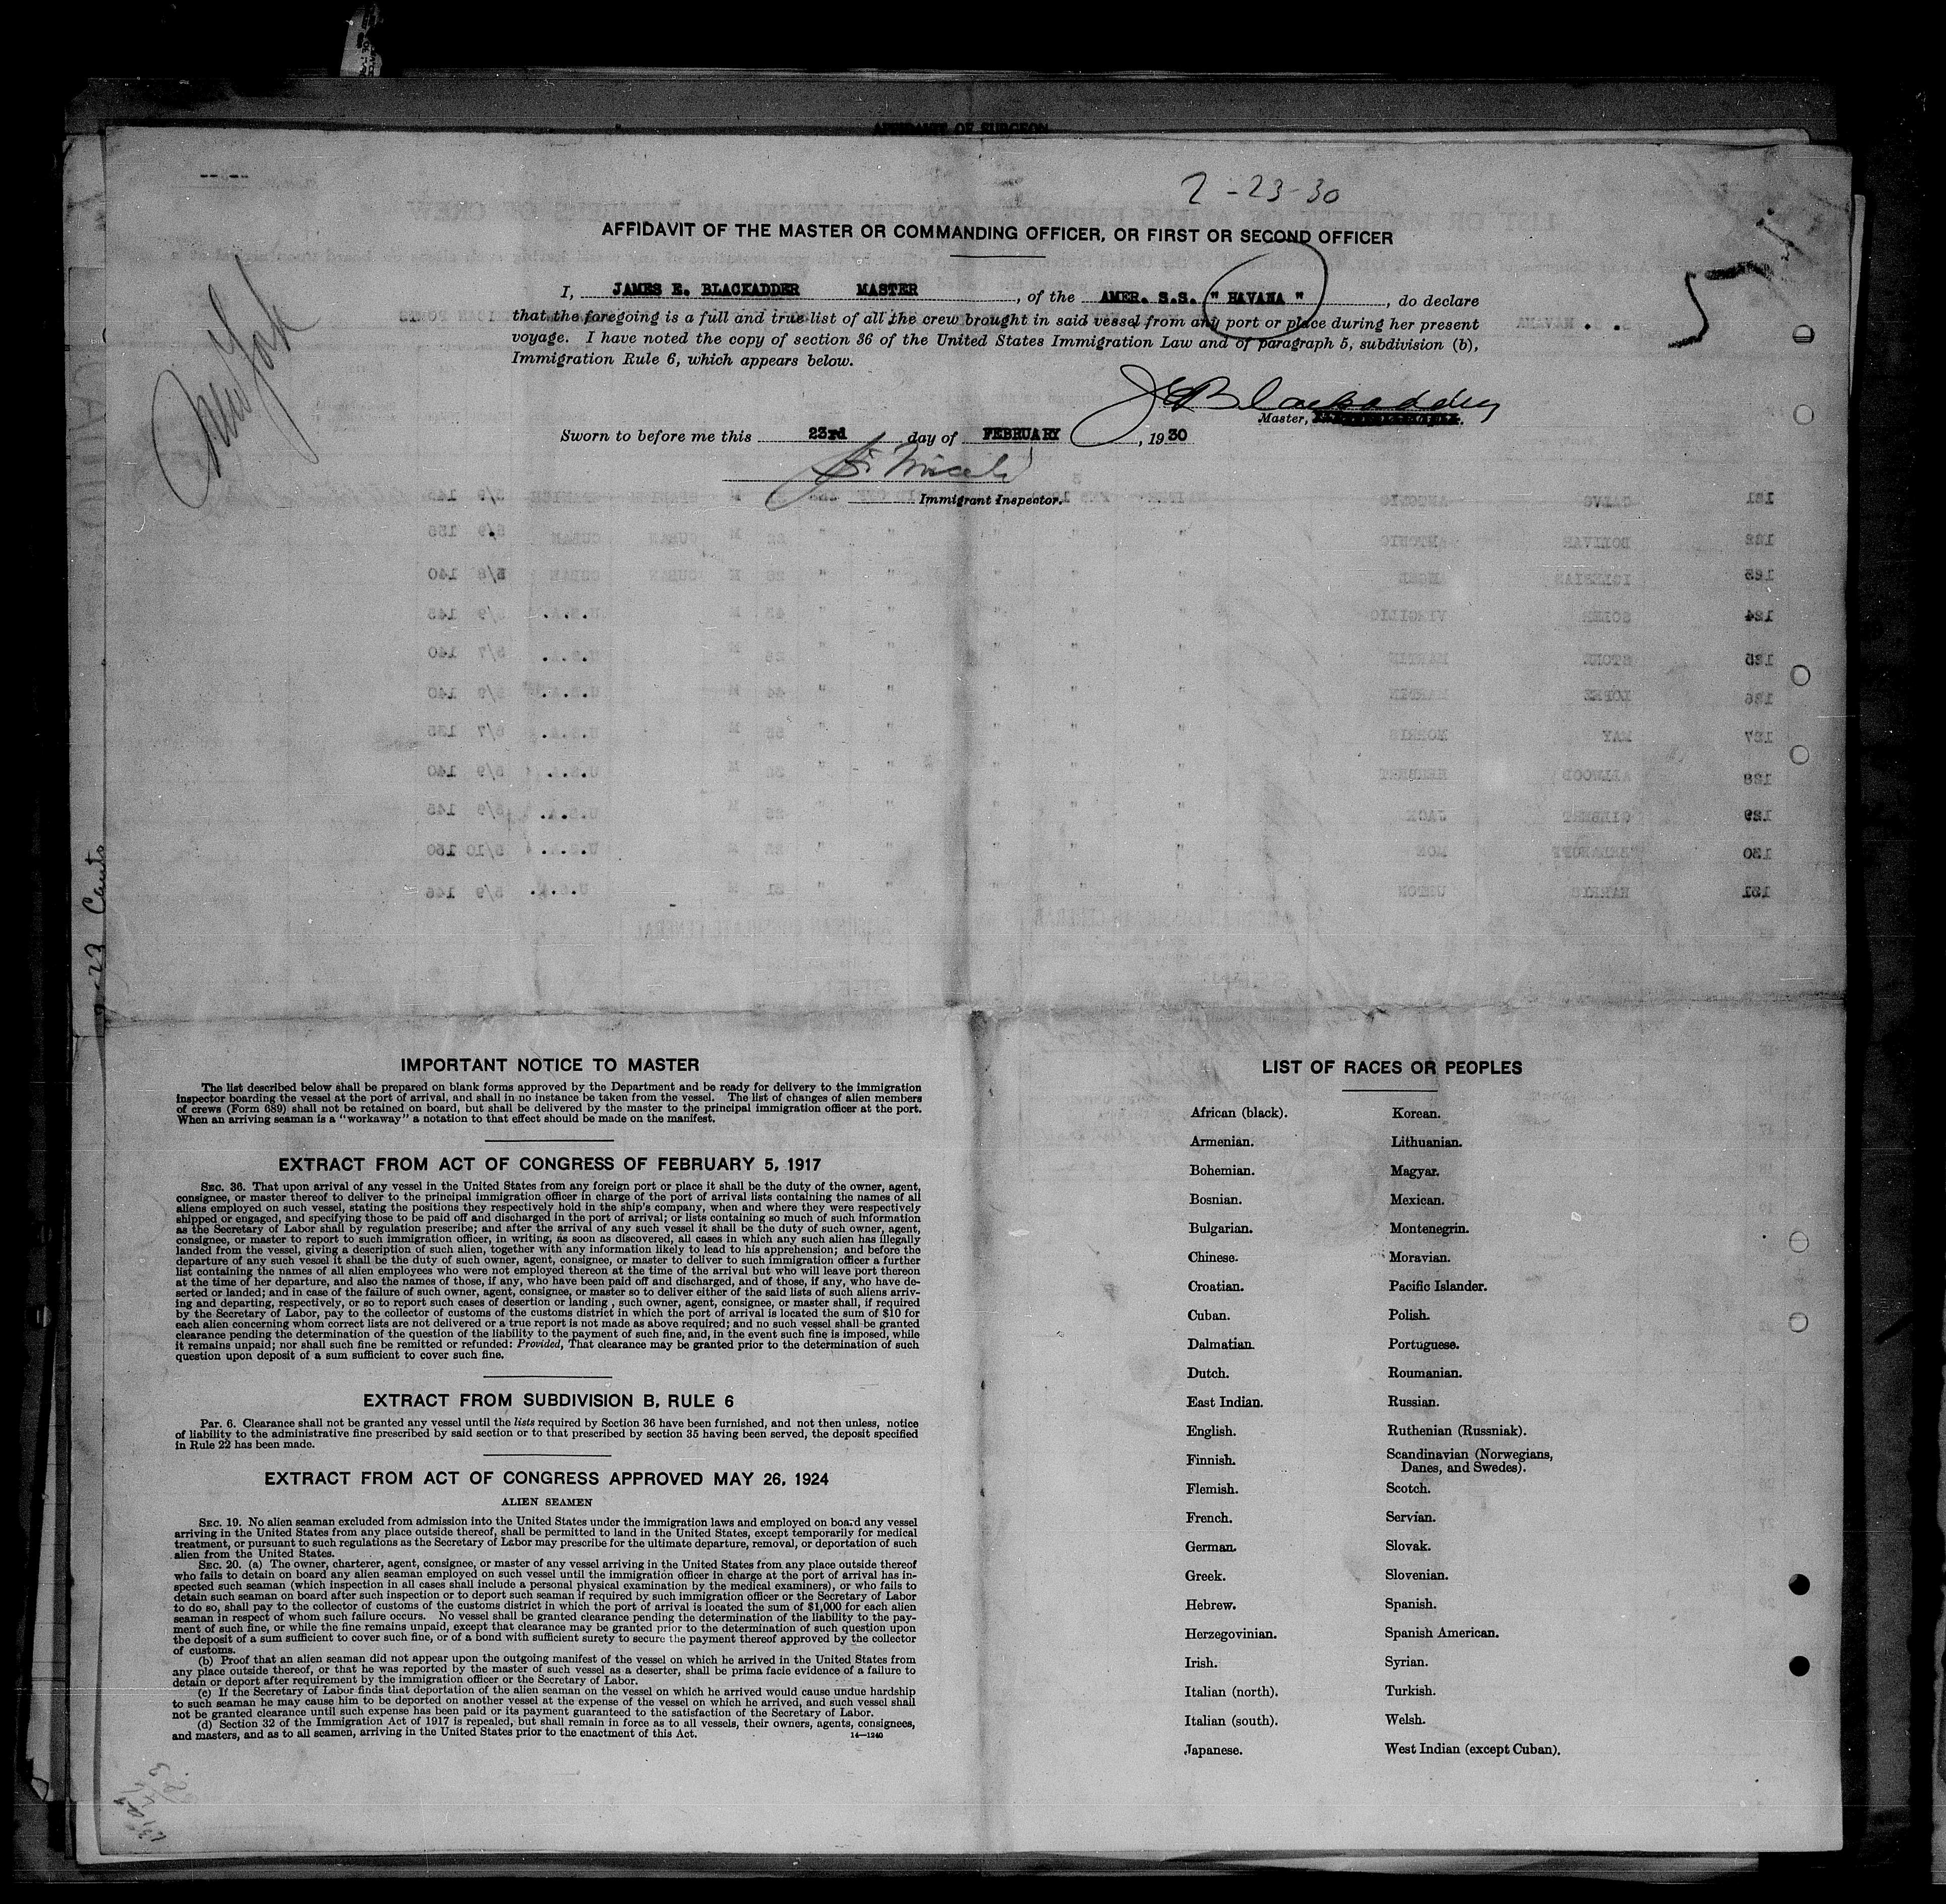 AFFIDAVIT OF SURGEON
2-23-30
AFFIDAVIT OF THE MASTER OR COMMANDING OFFICER, OR FIRST OR SECOND OFFICER
I, JAMES E. BLACKADDER MASTER, of the AMER. S.S. " HAVANA ", do declare
that the foregoing is a full and true list of all the crew brought in said vessel from any port or place during her present
voyage. I have noted the copy of section 36 of the United States Immigration Law and of paragraph 5, subdivision (b),
Immigration Rule 6, which appears below.
New York
5
J E Blackadder
Master,
Sworn to before me this 23rd day of FEBRUARY, 1930
Immigrant Inspector.
IMPORTANT NOTICE TO MASTER
The list described below shall be prepared on blank forms approved by the Department and be ready for delivery to the immigration
inspector boarding the vessel at the port of arrival, and shall in no instance be taken from the vessel. The list of changes of alien members
of crews (Form 689) shall not be retained on board, but shall be delivered by the master to the principal immigration officer at the port.
When an arriving seaman is a "workaway" a notation to that effect should be made on the manifest.
EXTRACT FROM ACT OF CONGRESS OF FEBRUARY 5, 1917
SEC. 36. That upon arrival of any vessel in the United States from any foreign port or place it shall be the duty of the owner, agent,
consignee, or master thereof to deliver to the principal immigration officer in charge of the port of arrival lists containing the names of all
aliens employed on such vessel, stating the positions they respectively hold in the ship's company, when and where they were respectively
shipped or engaged, and specifying those to be paid off and discharged in the port of arrival; or lists containing so much of such information
as the Secretary of Labor shall by regulation prescribe; and after the arrival of any such vessel it shall be the duty of such owner, agent,
consignee, or master to report to such immigration officer, in writing, as soon as discovered, all cases in which any such alien has illegally
landed from the vessel, giving a description of such alien, together with any information likely to lead to his apprehension; and before the
departure of any such vessel it shall be the duty of such owner, agent, consignee, or master to deliver to such immigration officer a further
list containing the names of all alien employees who were not employed thereon at the time of the arrival but who will leave port thereon
at the time of her departure, and also the names of those, if any, who have been paid off and discharged, and of those, if any, who have de-
serted or landed; and in case of the failure of such owner, agent, consignee, or master so to deliver either of the said lists of such aliens arriv-
ing and departing, respectively, or so to report such cases of desertion or landing , such owner, agent, consignee, or master shall, if required
by the Secretary of Labor, pay to the collector of customs of the customs district in which the port of arrival is located the sum of $10 for
each alien concerning whom correct lists are not delivered or a true report is not made as above required; and no such vessel shall be granted
clearance pending the determination of the question of the liability to the payment of such fine, and, in the event such fine is imposed, while
it remains unpaid; nor shall such fine be remitted or refunded: Provided, That clearance may be granted prior to the determination of such
question upon deposit of a sum sufficient to cover such fine.
EXTRACT FROM SUBDIVISION B, RULE 6
Par. 6. Clearance shall not be granted any vessel until the lists required by Section 36 have been furnished, and not then unless, notice
of liability to the administrative fine prescribed by said section or to that prescribed by section 35 having been served, the deposit specified
in Rule 22 has been made.
EXTRACT FROM ACT OF CONGRESS APPROVED MAY 26, 1924
ALIEN SEAMEN
SEC. 19. No alien seaman excluded from admission into the United States under the immigration laws and employed on board any vessel
arriving in the United States from any place outside thereof, shall be permitted to land in the United States, except temporarily for medical
treatment, or pursuant to such regulations as the Secretary of Labor may prescribe for the ultimate departure, removal, or deportation of such
alien from the United States.
SEC. 20. (a) The owner, charterer, agent, consignee, or master of any vessel arriving in the United States from any place outside thereof
who fails to detain on board any alien seaman employed on such vessel until the immigration officer in charge at the port of arrival has in-
spected such seaman (which inspection in all cases shall include a personal physical examination by the medical examiners), or who fails to
detain such seaman on board after such inspection or to deport such seaman if required by such immigration officer or the Secretary of Labor
to do so, shall pay to the collector of customs of the customs district in which the port of arrival is located the sum of $1,000 for each alien
seaman in respect of whom such failure occurs. No vessel shall be granted clearance pending the determination of the liability to the pay-
ment of such fine, or while the fine remains unpaid, except that clearance may be granted prior to the determination of such question upon
the deposit of a sum sufficient to cover such fine, or of a bond with sufficient surety to secure the payment thereof approved by the collector
of customs.
(b) Proof that an alien seaman did not appear upon the outgoing manifest of the vessel on which he arrived in the United States from
any place outside thereof, or that he was reported by the master of such vessel as a deserter, shall be prima facie evidence of a failure to
detain or deport after requirement by the immigration officer or the Secretary of Labor.
(c) If the Secretary of Labor finds that deportation of the alien seaman on the vessel on which he arrived would cause undue hardship
to such seaman he may cause him to be deported on another vessel at the expense of the vessel on which he arrived, and such vessel shall
not be granted clearance until such expense has been paid or its payment guaranteed to the satisfaction of the Secretary of Labor.
(d) Section 32 of the Immigration Act of 1917 is repealed, but shall remain in force as to all vessels, their owners, agents, consignees,
and masters, and as to all seamen, arriving in the United States prior to the enactment of this Act. 14—1240
LIST OF RACES OR PEOPLES
African (black).
Armenian.
Bohemian.
Bosnian.
Bulgarian.
Chinese.
Croatian.
Cuban.
Dalmatian.
Dutch.
East Indian.
English.
Finnish.
Flemish.
French.
German.
Greek.
Hebrew.
Herzegovinian.
Irish.
Italian (north).
Italian (south).
Japanese.
Korean.
Lithuanian.
Magyar.
Mexican.
Montenegrin.
Moravian.
Pacific Islander.
Polish.
Portuguese.
Roumanian.
Russian.
Ruthenian (Russniak).
Scandinavian (Norwegians,
Danes, and Swedes).
Scotch.
Servian.
Slovak.
Slovenian.
Spanish.
Spanish American.
Syrian.
Turkish.
Welsh.
West Indian (except Cuban).